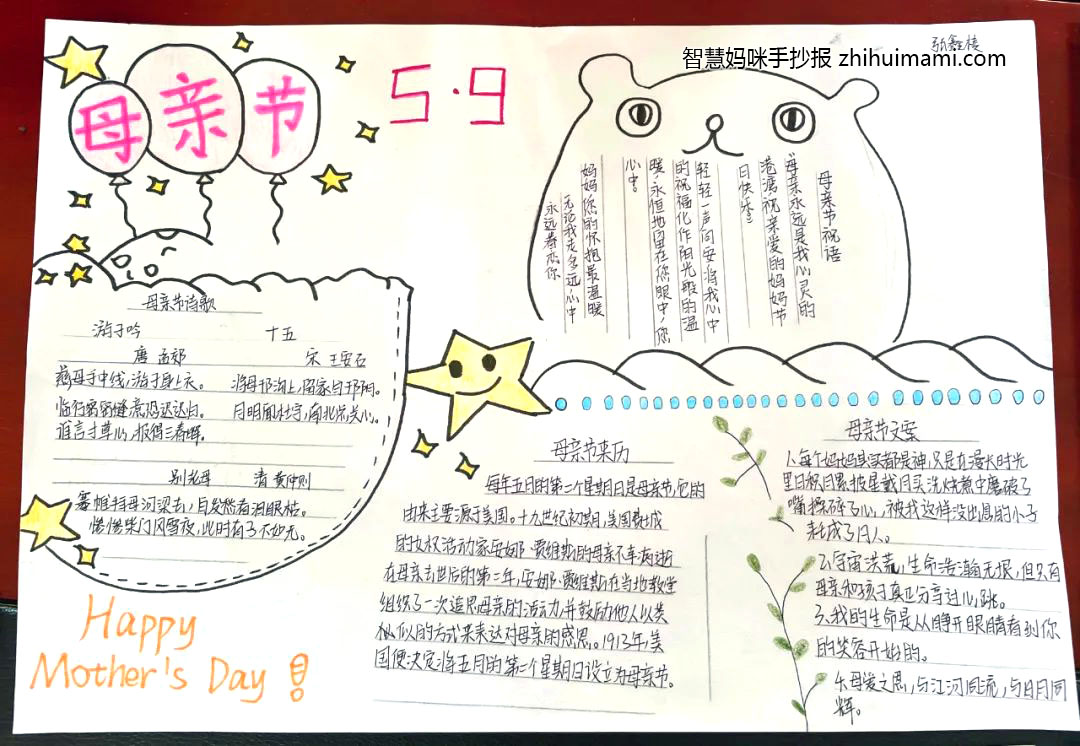 智慧妈咪手抄报 zhihuimami.com
母亲节
5·9
母亲节祝语
母亲永远是我心灵的
港湾祝亲爱的妈妈节
日快乐
轻轻一声问安将我心中
的祝福化作阳光般的温
暖,永恒地留在您眼中,您
心中。
妈妈您的怀抱最温暖
无论我走多远心中
永远眷恋你
母亲节诗歌
游子吟
唐 孟郊
慈母手中线,游子身上衣。
临行密密缝,意恐迟迟归。
谁言寸草心,报得三春晖。
十五
宋 王安石
将母邗沟上,留家白邗阴。
月明闻杜宇,南北总关心。
别老母 清 黄仲则
搴帷拜母河梁去,白发愁看泪眼枯。
惨惨柴门风雪夜,此时有子不如无。
Happy
Mother's Day!
母亲节来历
每年五月的第二个星期日是母亲节,它的
由来主要源于美国。十九世纪初期,美国费城
的女权活动家安娜·贾维斯的母亲不幸病逝
在母亲去世后的第二年,安娜·贾维斯在当地教堂
组织了一次追思母亲的活动,并鼓励他人以类
似似的方式来表达对母亲的感恩。1913年,美
国便决定将五月的第二个星期日设立为母亲节。
母亲节文案
1、每个妈妈其实都是神,只是在漫长时光
里日积月累,披星戴月买洗烧煮中磨破了
嘴操碎了心,被我这样没出息的小子
耗成了凡人。
2、宇宙洪荒,生命浩瀚无垠,但只有
母亲和孩子真正分享过心跳。
3、我的生命是从睁开眼睛看到你
的笑容开始的。
4、母爱之恩,与江河同流,与日月同
辉。